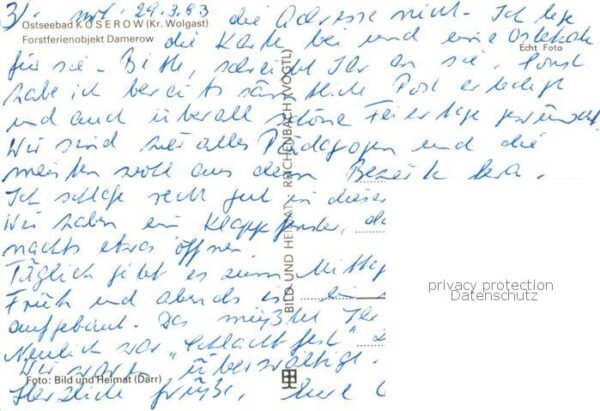 3) 29.3.83 die Adresse nicht. Ich lege
Ostseebad KOSEROW (Kr. Wolgast)
Forstferienobjekt Damerow
die Karte bei und eine Osterkarte
Echt Foto
für sie. Bitte, schreibt Ihr an sie. Sonst
habe ich bereits sämtliche Post erledigt
und auch überall schöne Feiertage gewünscht
Wir sind hier alles Pädagogen und die
meisten wohl aus dem Bezirk
Ich schlafe recht gut in dieser
Wir haben ein Klappfenster,
nachts etwas öffnen
Täglich gibt es zum Mittag
Früh und abends ist ein
aufgebaut. Das müßtet Ihr
Neulich war "Schlachtfest"
Wir waren überwältigt.
Foto: Bild und Heimat (Darr)
Herzliche Grüße, Eure
BILD UND HEIMAT REICHENBACH (VOGTL)
privacy protection
Datenschutz